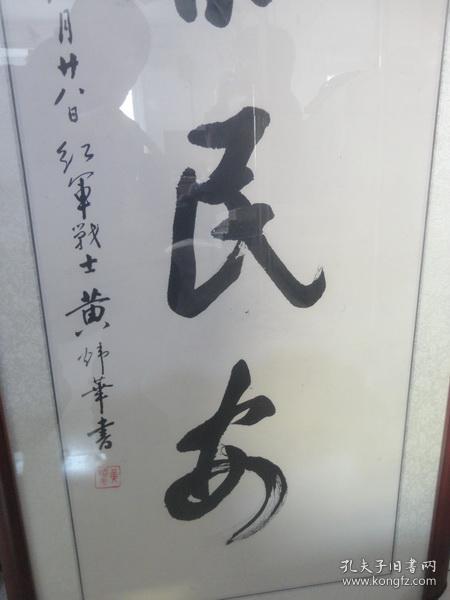 民安
月廿八日 红軍戰士 黄炜華書
孔夫子旧书网
www.kongfz.com